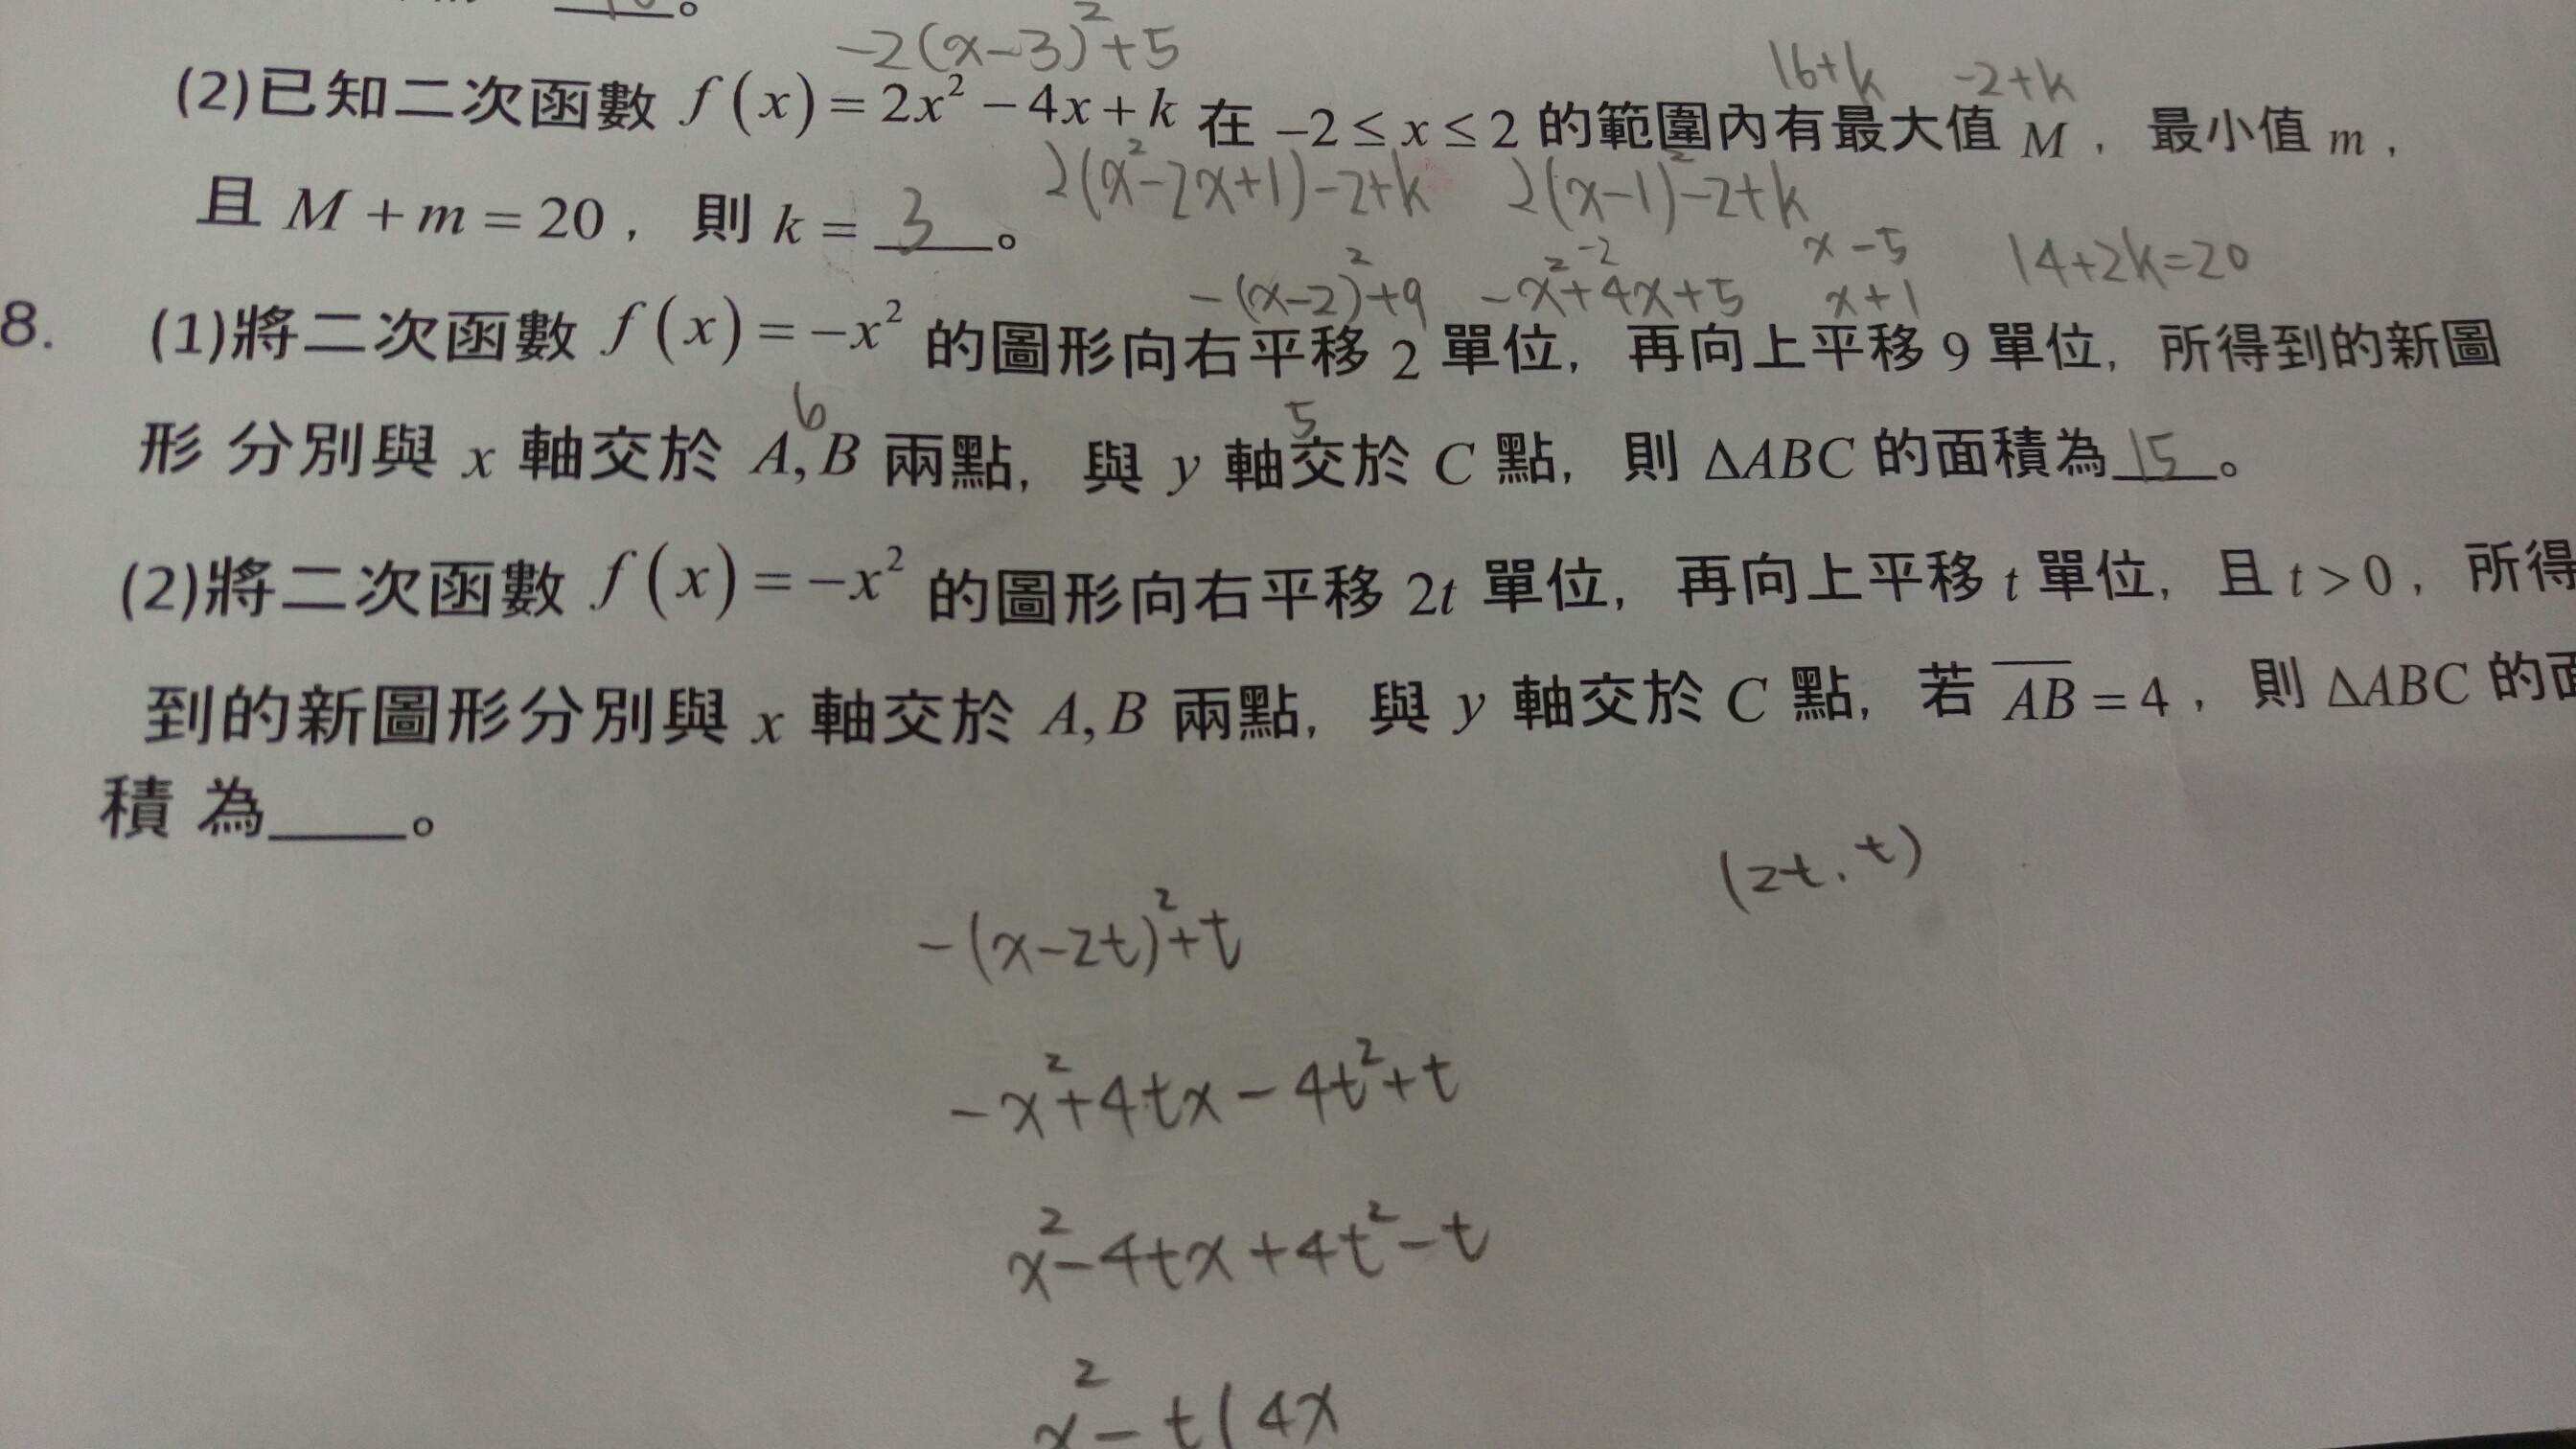 -2(x-3)²+5
16+k -2+k
(2)已知二次函數 f(x)=2x²-4x+k 在 -2≤x≤2 的範圍內有最大值 M，最小值 m，
2(x²-2x+1)-2+k 2(x-1)²-2+k
且 M+m=20，則 k=3。
14+2k=20
-(x-2)²+9 -x²+4x+5
x -5
x +1
8. (1)將二次函數 f(x)=-x² 的圖形向右平移 2 單位，再向上平移 9 單位，所得到的新圖
6 5
形 分別與 x 軸交於 A,B 兩點，與 y 軸交於 C 點，則 ΔABC 的面積為15。
(2)將二次函數 f(x)=-x² 的圖形向右平移 2t 單位，再向上平移 t 單位，且 t>0，所得
到的新圖形分別與 x 軸交於 A,B 兩點，與 y 軸交於 C 點，若 A̅B̅=4，則 ΔABC 的面
積 為____。
(2t,t)
-(x-2t)²+t
-x²+4tx-4t²+t
x²-4tx+4t²-t
x²-t(4x